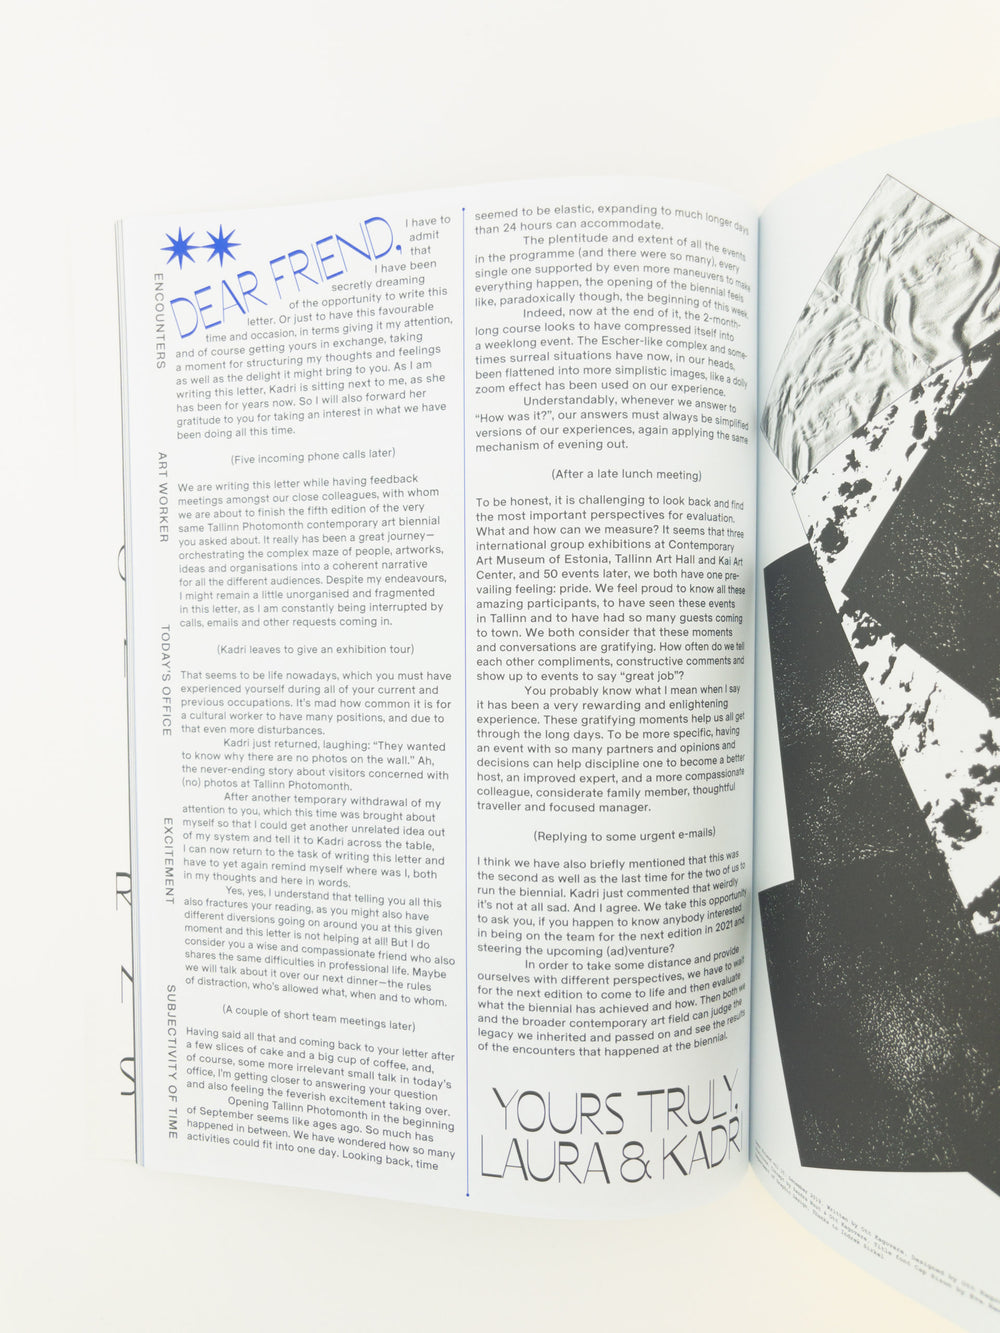 DEAR FRIEND,
I have to
admit
that
I have been
secretly dreaming
of the opportunity to write this
letter. Or just to have this favourable
time and occasion, in terms giving it my attention,
and of course getting yours in exchange, taking
a moment for structuring my thoughts and feelings
as well as the delight it might bring to you. As I am
writing this letter, Kadri is sitting next to me, as she
has been for years now. So I will also forward her
gratitude to you for taking an interest in what we have
been doing all this time.
(Five incoming phone calls later)
We are writing this letter while having feedback
meetings amongst our close colleagues, with whom
we are about to finish the fifth edition of the very
same Tallinn Photomonth contemporary art biennial
you asked about. It really has been a great journey—
orchestrating the complex maze of people, artworks,
ideas and organisations into a coherent narrative
for all the different audiences. Despite my endeavours,
I might remain a little unorganised and fragmented
in this letter, as I am constantly being interrupted by
calls, emails and other requests coming in.
(Kadri leaves to give an exhibition tour)
That seems to be life nowadays, which you must have
experienced yourself during all of your current and
previous occupations. It's mad how common it is for
a cultural worker to have many positions, and due to
that even more disturbances.
Kadri just returned, laughing: “They wanted
to know why there are no photos on the wall.” Ah,
the never-ending story about visitors concerned with
(no) photos at Tallinn Photomonth.
After another temporary withdrawal of my
attention to you, which this time was brought about
myself so that I could get another unrelated idea out
of my system and tell it to Kadri across the table,
I can now return to the task of writing this letter and
have to yet again remind myself where was I, both
in my thoughts and here in words.
Yes, yes, I understand that telling you all this
also fractures your reading, as you might also have
different diversions going on around you at this given
moment and this letter is not helping at all! But I do
consider you a wise and compassionate friend who also
shares the same difficulties in professional life. Maybe
we will talk about it over our next dinner—the rules
of distraction, who's allowed what, when and to whom.
(A couple of short team meetings later)
Having said all that and coming back to your letter after
a few slices of cake and a big cup of coffee, and,
of course, some more irrelevant small talk in today's
office, I'm getting closer to answering your question
and also feeling the feverish excitement taking over.
Opening Tallinn Photomonth in the beginning
of September seems like ages ago. So much has
happened in between. We have wondered how so many
activities could fit into one day. Looking back, time
ENCOUNTERS
ART WORKER
TODAY'S OFFICE
EXCITEMENT
SUBJECTIVITY OF TIME
seemed to be elastic, expanding to much longer days
than 24 hours can accommodate.
The plentitude and extent of all the events
in the programme (and there were so many), every
single one supported by even more maneuvers to make
everything happen, the opening of the biennial feels
like, paradoxically though, the beginning of this week.
Indeed, now at the end of it, the 2-month-
long course looks to have compressed itself into
a weeklong event. The Escher-like complex and some-
times surreal situations have now, in our heads,
been flattened into more simplistic images, like a dolly
zoom effect has been used on our experience.
Understandably, whenever we answer to
“How was it?”, our answers must always be simplified
versions of our experiences, again applying the same
mechanism of evening out.
(After a late lunch meeting)
To be honest, it is challenging to look back and find
the most important perspectives for evaluation.
What and how can we measure? It seems that three
international group exhibitions at Contemporary
Art Museum of Estonia, Tallinn Art Hall and Kai Art
Center, and 50 events later, we both have one pre-
vailing feeling: pride. We feel proud to know all these
amazing participants, to have seen these events
in Tallinn and to have had so many guests coming
to town. We both consider that these moments
and conversations are gratifying. How often do we tell
each other compliments, constructive comments and
show up to events to say “great job”?
You probably know what I mean when I say
it has been a very rewarding and enlightening
experience. These gratifying moments help us all get
through the long days. To be more specific, having
an event with so many partners and opinions and
decisions can help discipline one to become a better
host, an improved expert, and a more compassionate
colleague, considerate family member, thoughtful
traveller and focused manager.
(Replying to some urgent e-mails)
I think we have also briefly mentioned that this was
the second as well as the last time for the two of us to
run the biennial. Kadri just commented that weirdly
it's not at all sad. And I agree. We take this opportunity
to ask you, if you happen to know anybody interested
in being on the team for the next edition in 2021 and
steering the upcoming (ad)venture?
In order to take some distance and provide
ourselves with different perspectives, we have to wait
for the next edition to come to life and then evaluate
what the biennial has achieved and how. Then both we
and the broader contemporary art field can judge the
legacy we inherited and passed on and see the results
of the encounters that happened at the biennial.
YOURS TRULY,
LAURA & KADRI